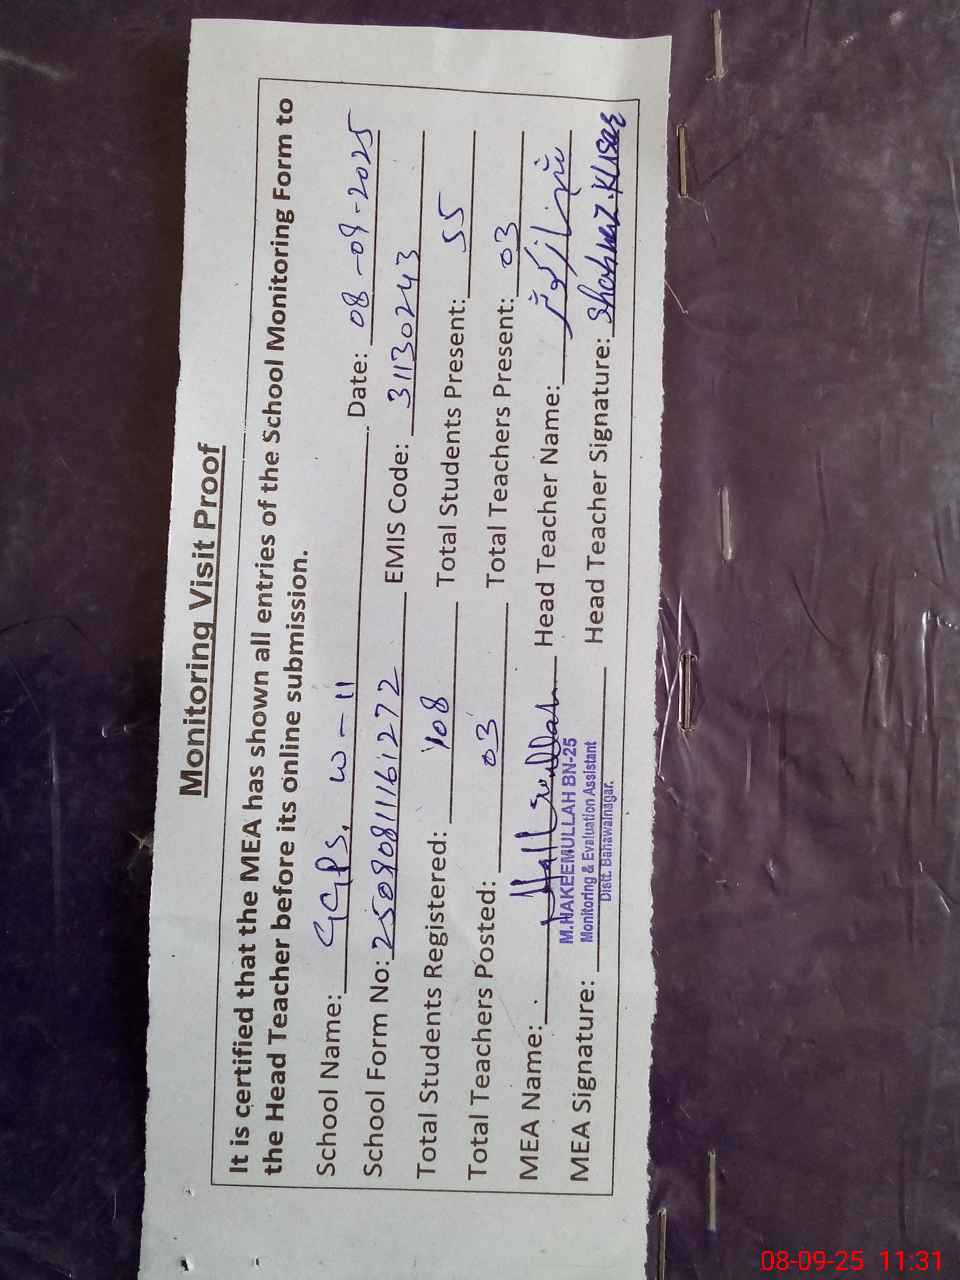 Monitoring Visit Proof
It is certified that the MEA has shown all entries of the School Monitoring Form to
the Head Teacher before its online submission.
School Name: GGPS. W-11 Date: 08-09-2025
School Form No: 25090811161272 EMIS Code: 31130243
Total Students Registered: 108 Total Students Present: 55
Total Teachers Posted: 03 Total Teachers Present: 03
MEA Name: Head Teacher Name:
M.HAKEEMULLAH BN-25
Monitoring & Evaluation Assistant
Distt. Bahawalnagar.
MEA Signature: Head Teacher Signature: Shahnaz Kusar
08-09-25 11:31